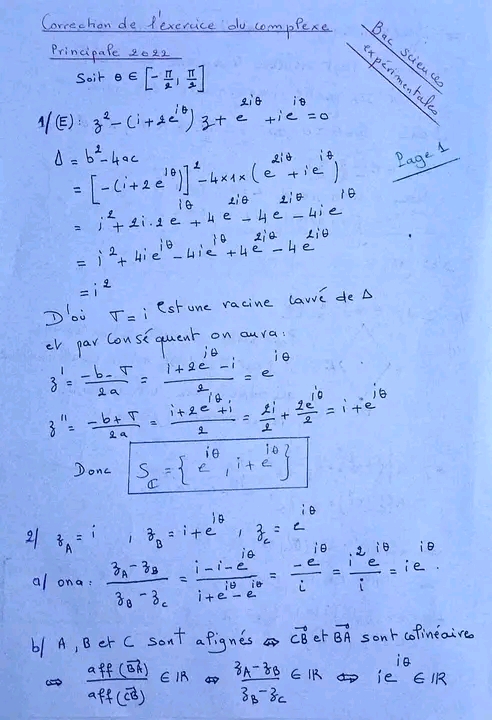 Correction de l'exercice du complexe
Principale 2022
Bac sciences
expérimentales
Page 1
Soit θ ∈ [-π/2, π/2]
1/ (E): z² - (i + 2e^{iθ}) z + e^{2iθ} + ie^{iθ} = 0
Δ = b² - 4ac
= [-(i + 2e^{iθ})]² - 4×1×(e^{2iθ} + ie^{iθ})
= i² + 2i·2e^{iθ} + 4e^{2iθ} - 4e^{2iθ} - 4ie^{iθ}
= i² + 4ie^{iθ} - 4ie^{iθ} + 4e^{2iθ} - 4e^{2iθ}
= i²
D'où T = i est une racine carré de Δ
et par conséquent on aura:
z' = (-b - T)/2a = (i + 2e^{iθ} - i)/2 = e^{iθ}
z'' = (-b + T)/2a = (i + 2e^{iθ} + i)/2 = 2i/2 + 2e^{iθ}/2 = i + e^{iθ}
Donc S_ℂ = {e^{iθ}, i + e^{iθ}}
2/ z_A = i , z_B = i + e^{iθ} , z_C = e^{iθ}
a/ ona: (z_A - z_B)/(z_B - z_C) = (i - i - e^{iθ})/(i + e^{iθ} - e^{iθ}) = -e^{iθ}/i = i²e^{iθ}/i = ie^{iθ}.
b/ A, B et C sont alignés ⇔ CB⃗ et BA⃗ sont colinéaires
⇔ aff(BA⃗)/aff(CB⃗) ∈ IR ⇔ (z_A - z_B)/(z_B - z_C) ∈ IR ⇔ ie^{iθ} ∈ IR